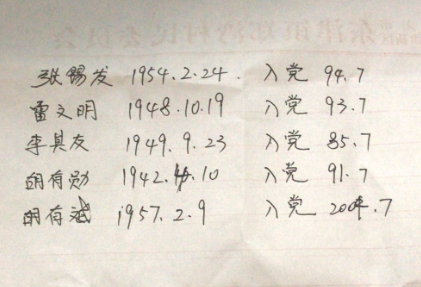 张锡发 1954.2.24. 入党 94.7
雷文明 1948.10.19 入党 93.7
李其友 1949.9.23 入党 85.7
胡有勋 1942.4.10 入党 91.7
胡有斌 1957.2.9 入党 2004.7